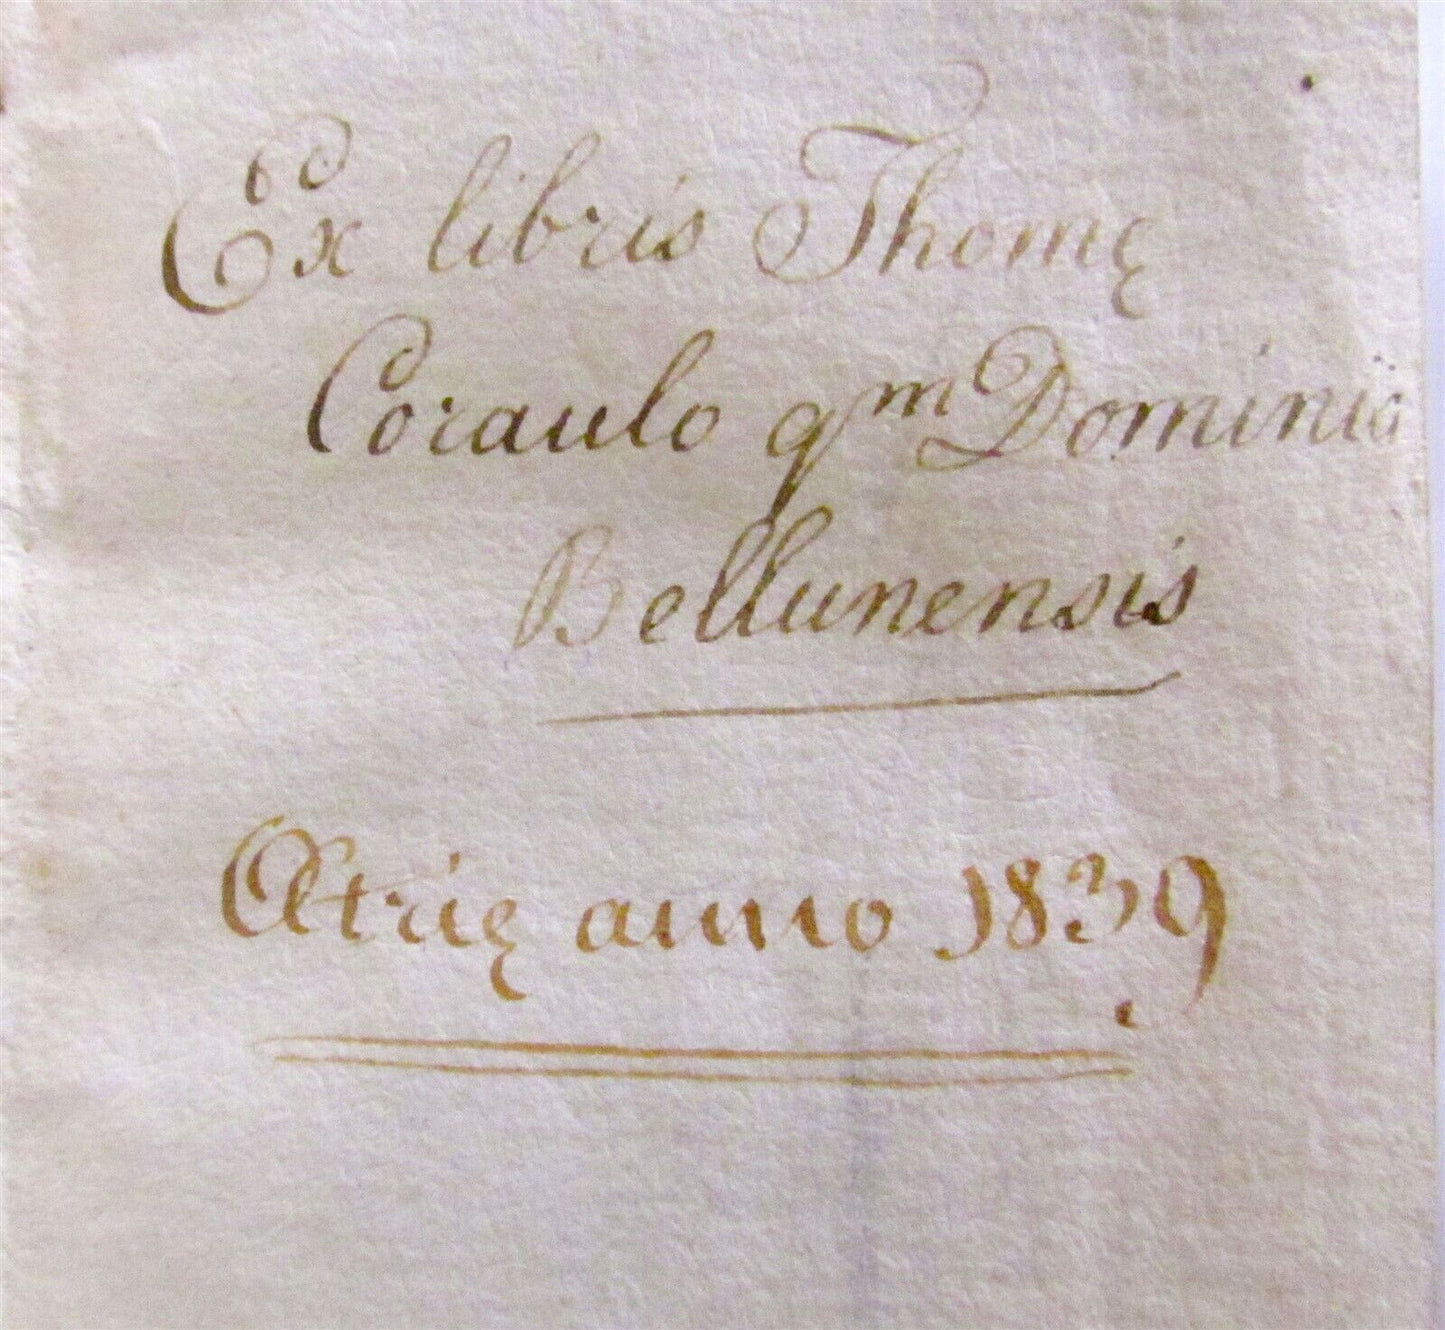 Ex libris Thomę
Coraulo qm Dominici
Bellunensis
anno 1839